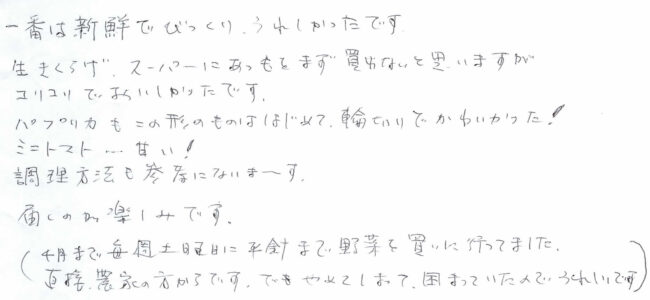 一番は新鮮でびっくり、うれしかったです。
生きくらげ、スーパーにあってもまず買わないと思いますが
コリコリでおいしかったです。
パプリカもこの形のものははじめて、輪切りでかわいかった!
ミニトマト…甘い!
調理方法も参考にないまーす。
届くのが楽しみです。
(4月まで毎週土曜日に平針まで野菜を買いに行ってました。
直接、農家の方からです。でもやめてしまって、困っていたんでうれしいです)